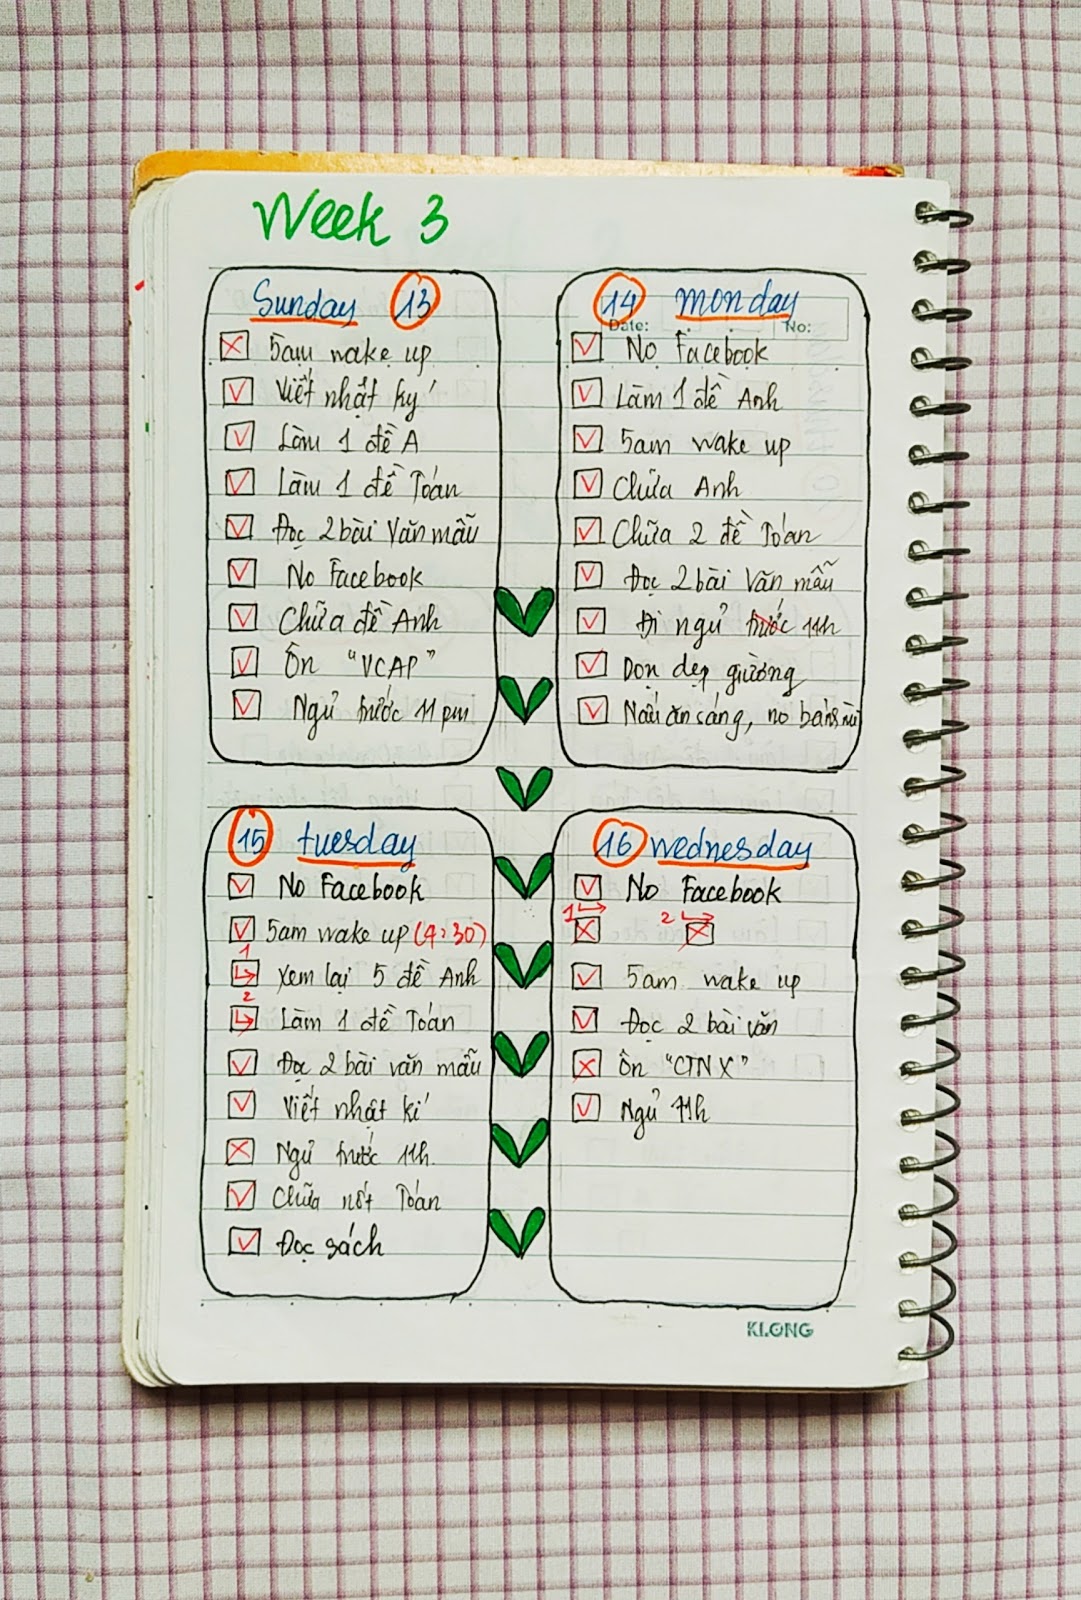 Week 3
Sunday 13
5am wake up
Viết nhật ký
Làm 1 đề A
Làm 1 đề Toán
Đọc 2 bài Văn mẫu
No Facebook
Chữa đề Anh
Ôn "VCAP"
Ngủ trước 11 pm
14 monday
Date: No:
No Facebook
Làm 1 đề Anh
5am wake up
Chữa Anh
Chữa 2 đề Toán
Đọc 2 bài Văn mẫu
Đi ngủ trước 11h
Dọn dẹp giường
Nấu ăn sáng, no bánh mì
15 tuesday
No Facebook
5am wake up (4:30)
1
Xem lại 5 đề Anh
2
Làm 1 đề Toán
Đọc 2 bài văn mẫu
Viết nhật kí
Ngủ trước 11h.
Chữa nốt Toán
Đọc sách
16 wednesday
No Facebook
1 2
5am wake up
Đọc 2 bài văn
Ôn "CTNX"
Ngủ 11h
KLONG